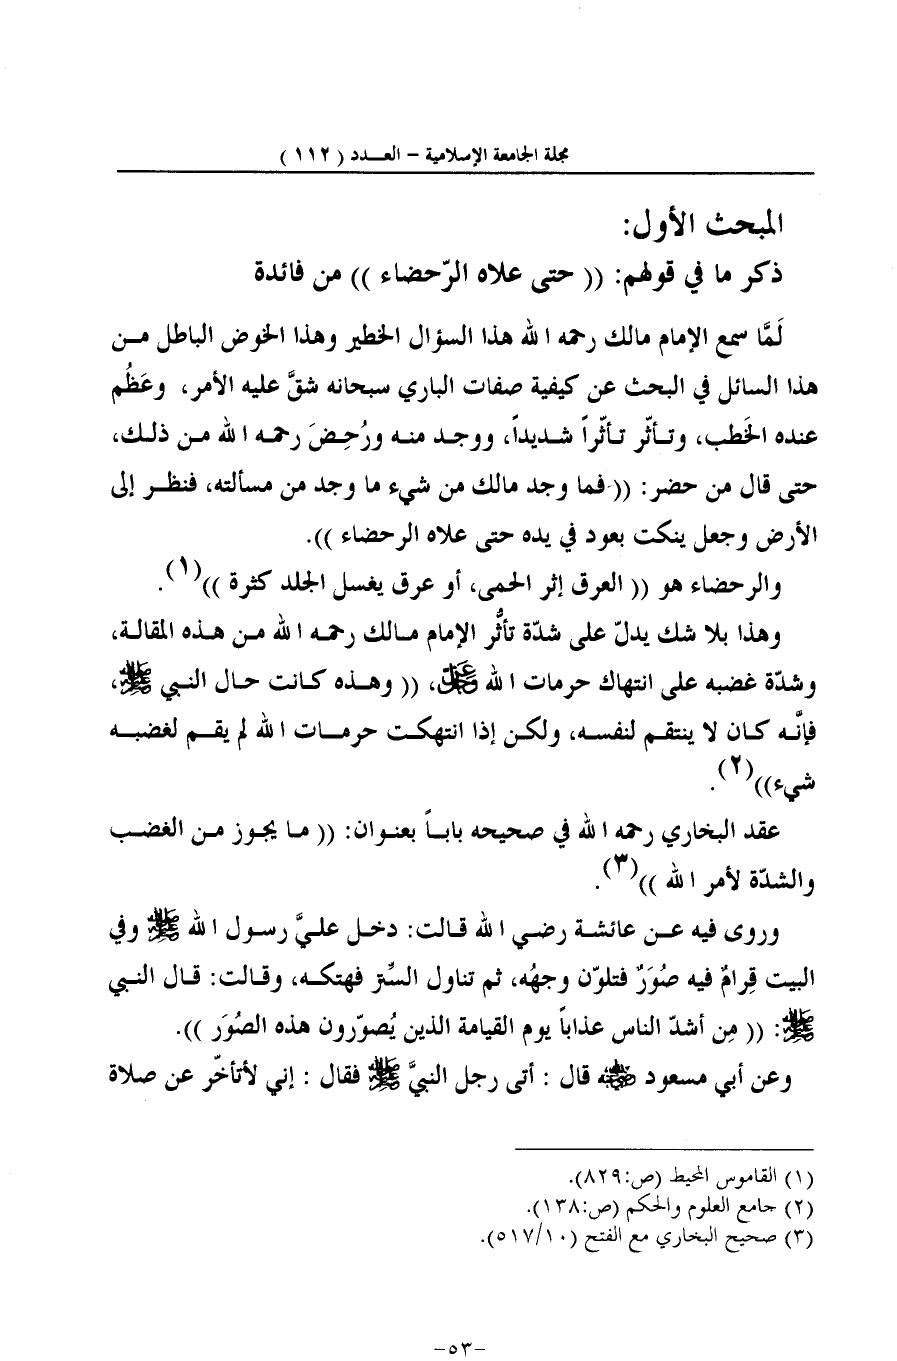 مجلة الجامعة الإسلامية – العـــدد ( ١١٢ )
المبحث الأول:
ذكر ما في قولهم: (( حتى علاه الرّحضاء )) من فائدة
لَمَّا سمع الإمام مالك رحمه الله هذا السؤال الخطير وهذا الخوض الباطل مــن
هذا السائل في البحث عن كيفية صفات الباري سبحانه شقَّ عليه الأمر، وعَظُم
عنده الخَطب، وتـأثّر تـأثّراً شـديداً، ووجـد منـه ورُحِـضَ رحمـه الله مـن ذلـك،
حتى قال من حضر: (( فما وجد مالك من شيء ما وجد من مسألته، فنظـــر إلى
الأرض وجعل ينكت بعود في يده حتى علاه الرحضاء )).
والرحضاء هو (( العرق إثر الحمى، أو عرق يغسل الجلد كثرة ))(١).
وهذا بلا شك يدلّ على شدّة تأثُّر الإمام مـالك رحمـه الله مـن هـذه المقالـة،
وشدّة غضبه على انتهاك حرمات الله ﷿، (( وهـذه كـانت حـال النـبي ﷺ،
فإنَّـه كـان لا ينتقـم لنفسـه، ولكـن إذا انتهكـت حرمـات الله لم يقـم لغضبـه
شيء))(٢).
عقد البخاري رحمه الله في صحيحه بابـاً بعنـوان: (( مـا يجـوز مـن الغضـب
والشدّة لأمر الله ))(٣).
وروى فيه عــن عائشـة رضـي الله قـالت: دخـل علـيَّ رسـول الله ﷺ وفي
البيت قِرامٌ فيه صُوَرٌ فتلوّن وجهُه، ثم تناول السِّتر فهتكـه، وقـالت: قـال النـبي
ﷺ: (( مِن أشدّ الناس عذاباً يوم القيامة الذين يُصوّرون هذه الصُوَر )).
وعن أبي مسعود ﵁ قال : أتى رجل النبيَّ ﷺ فقال : إني لأتأخّر عن صلاة
(١) القاموس المحيط (ص:٨٢٩).
(٢) جامع العلوم والحكم (ص:١٣٨).
(٣) صحيح البخاري مع الفتح (٥١٧/١٠).
-٥٣-